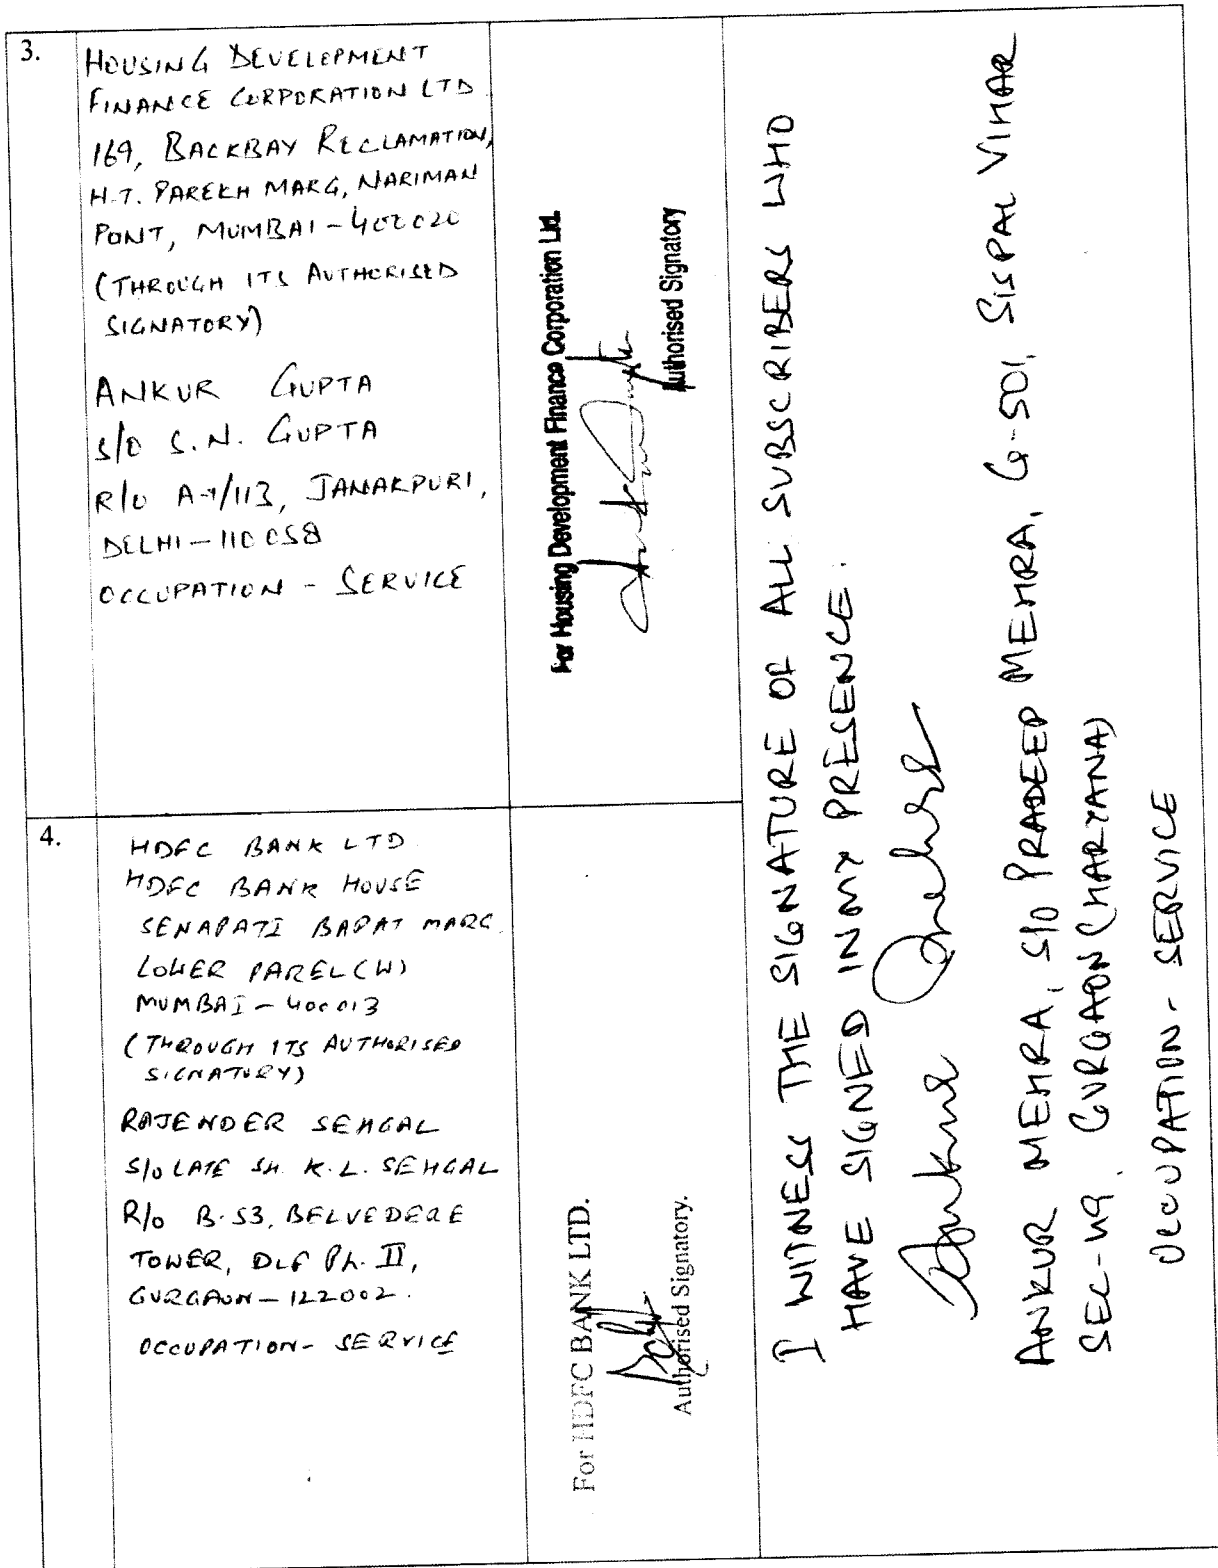 3.
HOUSING DEVELOPMENT
FINANCE CORPORATION LTD
169, BACKBAY RECLAMATION,
H.T. PAREKH MARG, NARIMAN
PONT, MUMBAI-400020
(THROUGH ITS AUTHORISED
SIGNATORY)
ANKUR GUPTA
S/O S.N. GUPTA
R/O A-1/113, JANAKPURI,
DELHI-110058
OCCUPATION - SERVICE
For Housing Development Finance Corporation Ltd.
Authorised Signatory
4.
HDFC BANK LTD
HDFC BANK HOUSE
SENAPATI BAPAT MARG
LOWER PAREL(W)
MUMBAI-400013
(THROUGH ITS AUTHORISED
SIGNATORY)
RAJENDER SEHGAL
S/O LATE SH. K.L. SEHGAL
R/o B-53, BELVEDERE
TOWER, DLF Ph. II,
GURGAON-122002.
OCCUPATION- SERVICE
For HDFC BANK LTD.
Authorised Signatory.
I WITNESS THE SIGNATURE OF ALL SUBSCRIBERS WHO
HAVE SIGNED IN MY PRESENCE.
Ankur Mehra
ANKUR MEHRA, S/O PRADEEP MEHRA, G-501, SISPAL VIHAR
SEC-49, GURGAON (HARYANA)
OCCUPATION- SERVICE